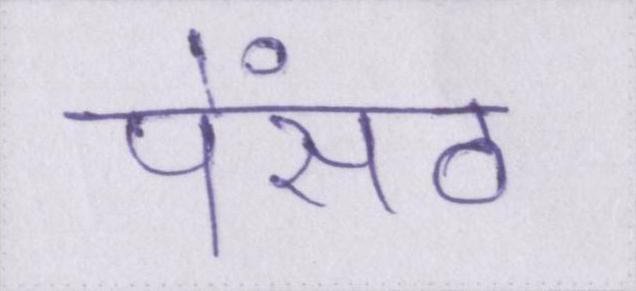 पेंसठ